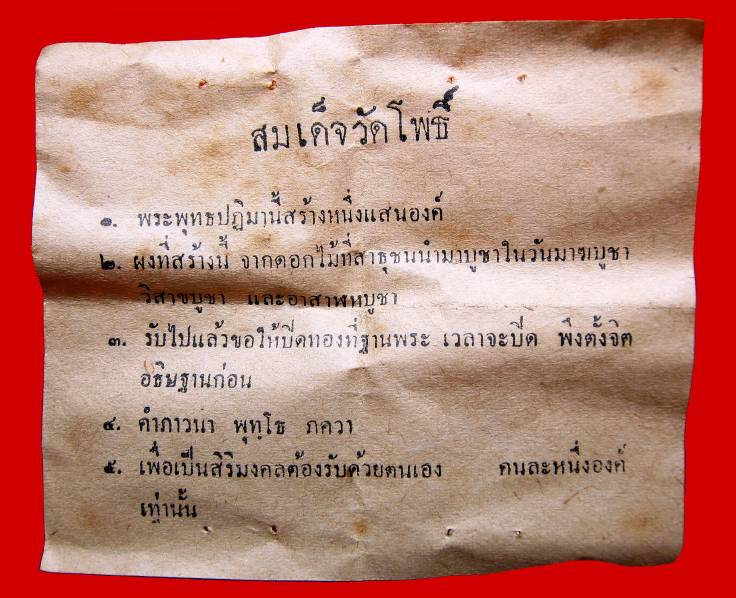 สมเด็จวัดโพธิ์
๑. พระพุทธปฏิมานี้สร้างหนึ่งแสนองค์
๒. ผงที่สร้างนี้ จากดอกไม้ที่สาธุชนนำมาบูชาในวันมาฆบูชา
วิสาขบูชา และอาสาฬหบูชา
๓. รับไปแล้วขอให้ปิดทองที่ฐานพระ เวลาจะปิด พึงตั้งจิต
อธิษฐานก่อน
๔. คำภาวนา พุทฺโธ ภควา
๕. เพื่อเป็นสิริมงคลต้องรับด้วยตนเอง คนละหนึ่งองค์
เท่านั้น